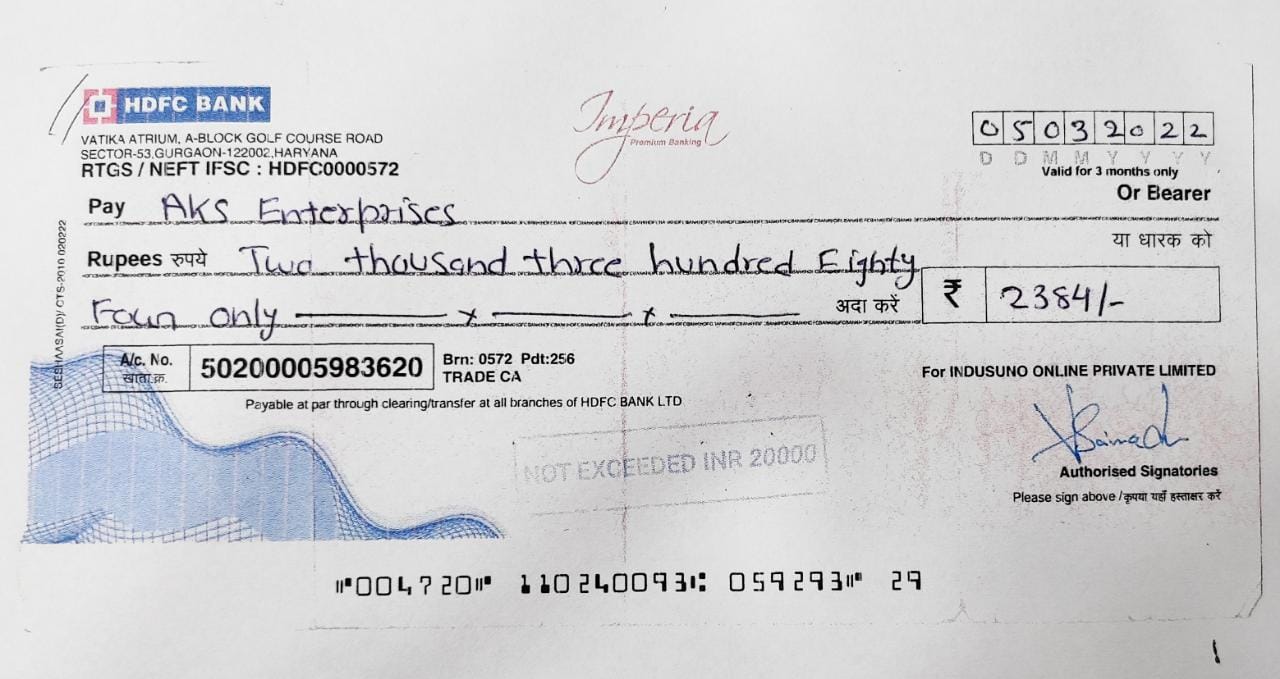 HDFC BANK
VATIKA ATRIUM, A-BLOCK GOLF COURSE ROAD
SECTOR-53,GURGAON-122002,HARYANA
RTGS / NEFT IFSC : HDFC0000572
Imperia
Premium Banking
05032022
D D M M Y Y Y Y
Valid for 3 months only
Pay AKS Enterprises Or Bearer
या धारक को
Rupees रुपये Two thousand three hundred Eighty
Four only x x अदा करें ₹ 2384/-
SESHAASAI(D)/ CTS-2010 020222
A/c. No. खाता क्र. 50200005983620 Brn: 0572 Pdt:256
TRADE CA
Payable at par through clearing/transfer at all branches of HDFC BANK LTD
For INDUSUNO ONLINE PRIVATE LIMITED
NOT EXCEEDED INR 20000
Authorised Signatories
Please sign above /कृपया यहाँ हस्ताक्षर करें
⑈004720⑈ 110240093⑆ 059293⑈ 29